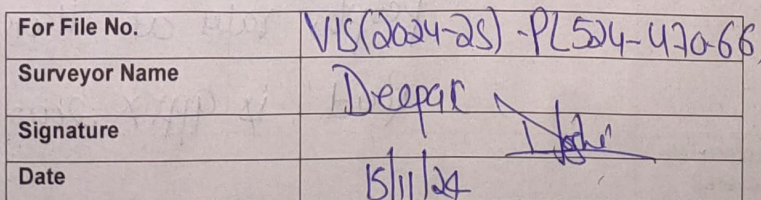 For File No. VIS(2024-25)-PL524-470-66
Surveyor Name Deepak
Signature Joshi
Date 15/11/24